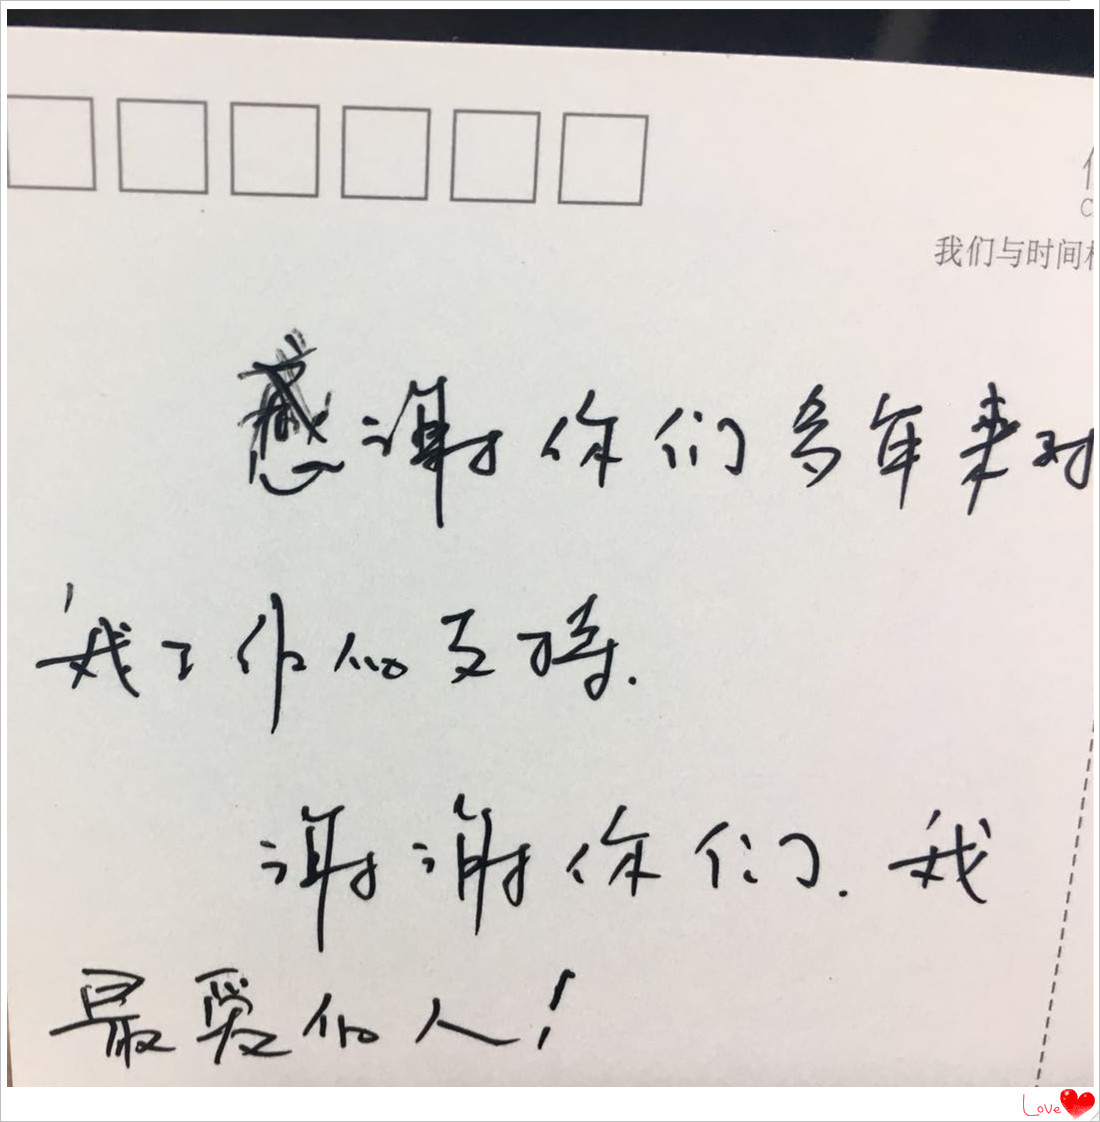 我们与时间
感谢你们多年来对
我工作的支持.
谢谢你们.我
最爱的人!
Love